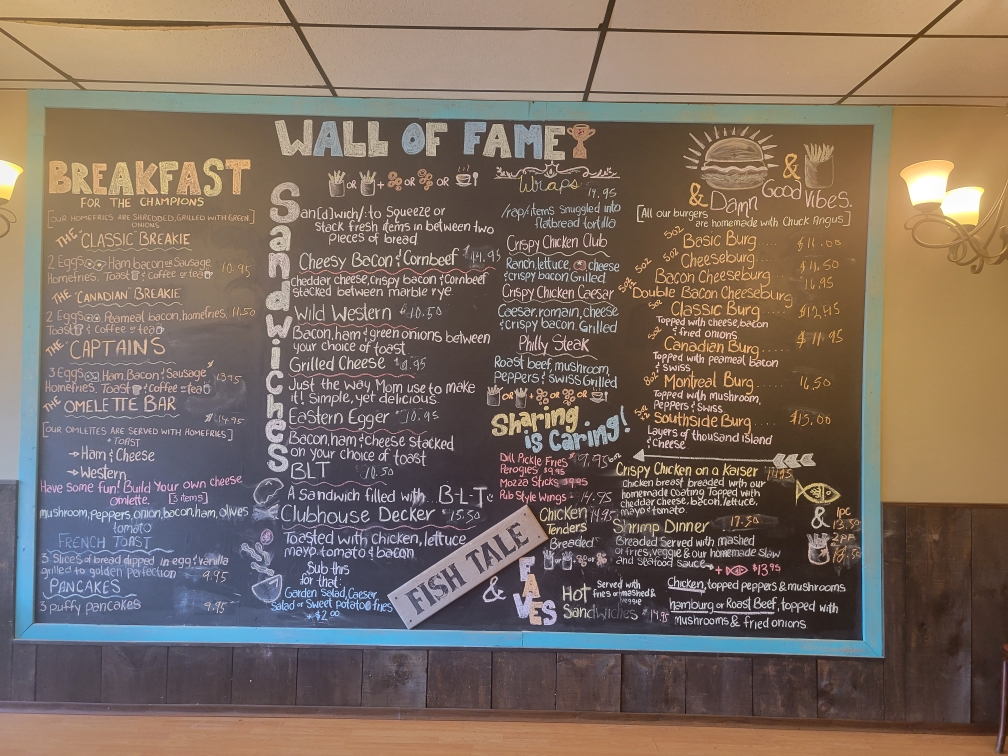 WALL OF FAME
BREAKFAST
FOR THE CHAMPIONS
[OUR HOMEFRIES ARE SHREDDED, GRILLED WITH GREEN ONIONS]
THE "CLASSIC" BREAKIE
2 Eggs Ham bacon or Sausage
Homefries. Toast & Coffee or tea 10.95
THE "CANADIAN" BREAKIE
2 Eggs Peameal bacon, homefries, 11.50
Toast & Coffee or tea
THE "CAPTAINS
3 Eggs Ham, Bacon & Sausage
Homefries Toast & Coffee or tea 13.95
THE OMELETTE BAR
$14.95
[OUR OMLETTES ARE SERVED WITH HOMEFRIES]
+ TOAST
→Ham & Cheese
→Western
Have some fun! Build Your own cheese
omlette. [3 items]
mushroom, peppers, onion, bacon, ham, olives
tomato
FRENCH TOAST
3 Slices of bread dipped in egg & vanilla
grilled to golden perfection 9.95
PANCAKES
3 puffy pancakes 9.95
Sandwiches
or + or or
San[d]wich/: to Squeeze or
stack fresh items in between two
pieces of bread
Cheesy Bacon & Cornbeef $14.95
Cheddar cheese, crispy bacon & cornbeef
stacked between marble rye
Wild Western $10.50
Bacon, ham & green onions between
your choice of toast
Grilled Cheese
Just the way, Mom use to make
it! Simple, yet delicious.
Eastern Egger 10.95
Bacon, ham & cheese stacked
on your choice of toast
BLT 10.50
A sandwich filled with.. B-L-T:
Clubhouse Decker $15.50
Toasted with chicken, lettuce
mayo tomato & bacon
Sub this
for that:
Garden Salad, Caesar
Salad or Sweet potatoe fries
$2.00
Wraps 14.95
/rap/: items snuggled into
flatbread tortilla
Crispy Chicken Club
Ranch lettuce, cheese
& crispy bacon. Grilled
Crispy Chicken Caesar
Caesar, romain, cheese
& crispy bacon. Grilled
Philly Steak
Roast beef, mushroom,
peppers & swiss Grilled
Sharing
is Caring!
Dill Pickle Fries $9.95
Perogies $9.95
Mozza Sticks $9.95
Rib Style Wings - 14.95
Chicken 14.95
Tenders
Breaded
FISH TALE
& FAVES
Hot
Sandwiches 14.95
Served with
fries or mashed &
veggie
& & Damn Good Vibes.
[All our burgers
are homemade with Chuck Angus]
5oz Basic Burg..... $11.00
5oz Cheeseburg..... $11.50
5oz Bacon Cheeseburg
Double Bacon Cheeseburg
5oz Classic Burg..... $12.45
Topped with cheese, bacon
& fried onions
5oz Canadian Burg..... $11.95
Topped with peameal bacon
& swiss
8oz Montreal Burg..... 16.50
Topped with mushroom,
Peppers & swiss
5oz Southside Burg..... $15.00
Layers of thousand island
& cheese
Crispy Chicken on a Kaiser 14.95
Chicken breast breaded with our
homemade coating Topped with
cheddar cheese, bacon, lettuce,
mayo & tomato
& 1pc
13.50
2pc
Shrimp Dinner 17.50
Breaded Served with mashed
or fries, veggie & our homemade slaw
and seafood sauce → + $13.95
Chicken, topped peppers & mushrooms
hamburg or Roast Beef, topped with
mushrooms & fried onions